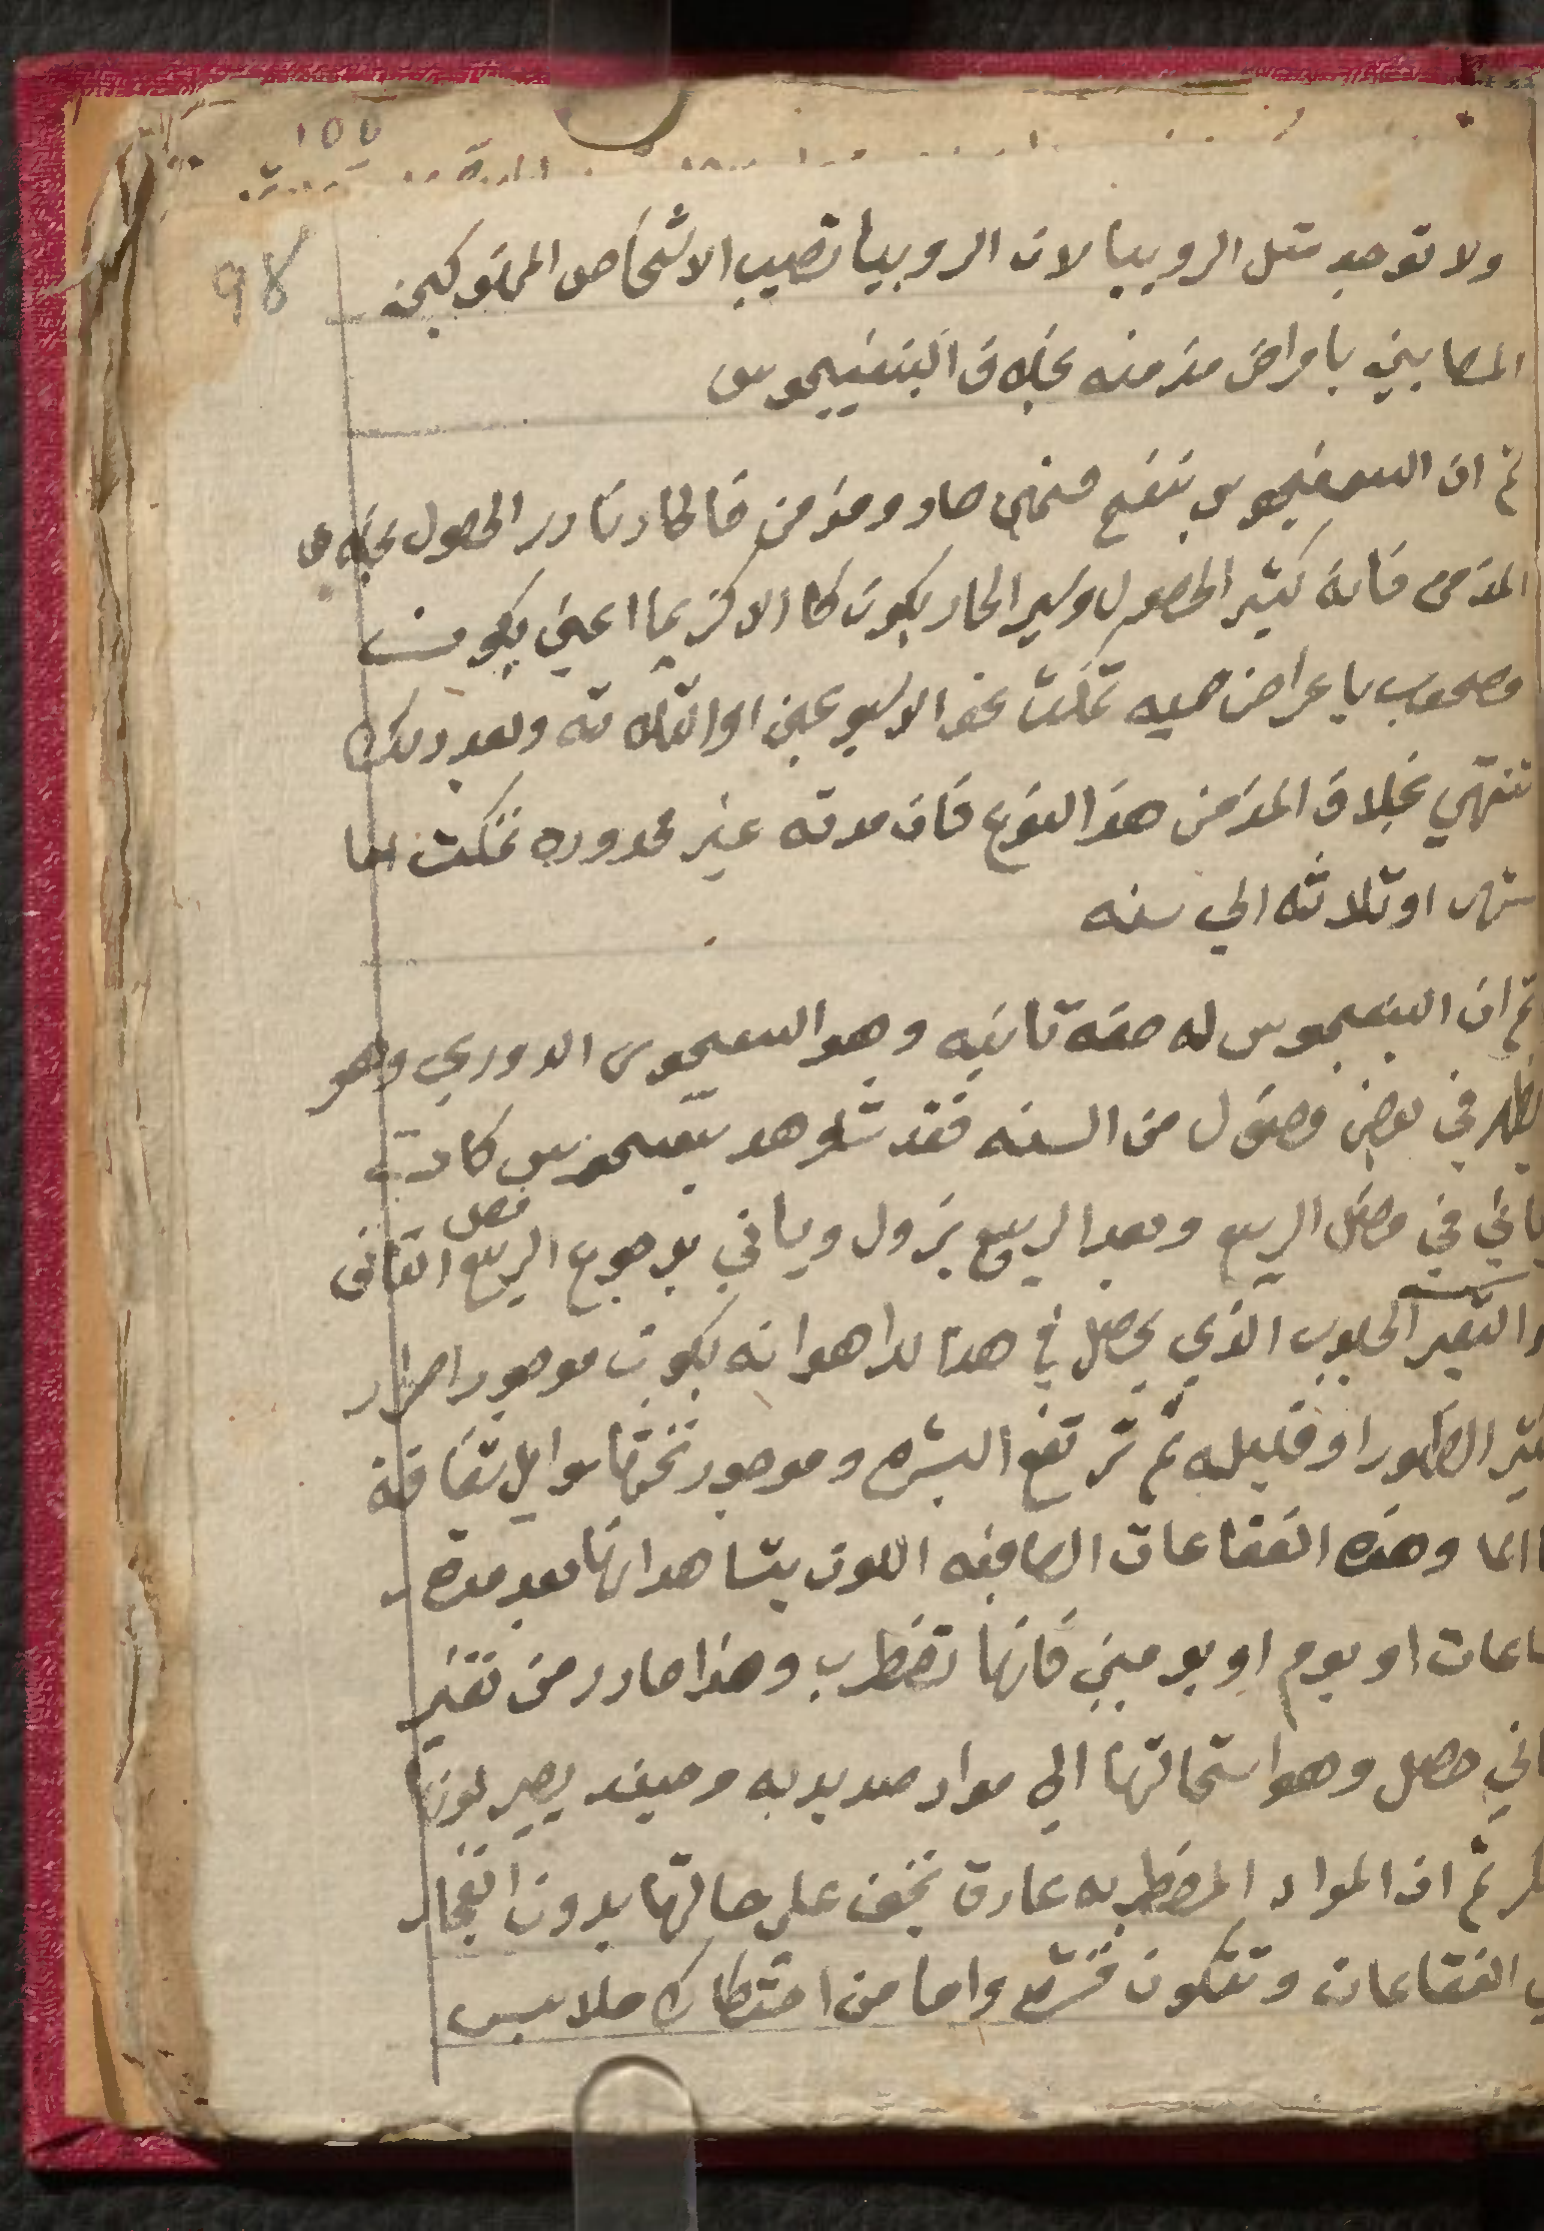 100
98
ولا توجد متل الروبيا لان الروبيا تصيب الاشخاص المنهوكين
المصابين بامراض مزمنه بخلاف البنفيجوس
ثم ان البمفيجوس ينقسم حاد ومزمن فالحاد نادر الحصول بخلاف
المزمن فانه كتير الحصول وسير الحاد يكون كالاكزيما اعني يكون
مصحوب باعراض حميه تمكث نحو الاسبوعين او التلاته وبعد دلك
تنتهي بخلاف المزمن هذا النوع فان مدته غير محدوده تمكث اما
شهر او تلاته الي سنه
ثم ان البنفيجوس له صفه تانيه وهو البمفيجوس الدوري وهو
يظهر في بعض فصول من السنه فقد شوهد بمفيجوس كان
ياتي في فصل الربيع وبعد الربيع يزول وياتي برجوع فصل الربيع التاني
والتغير الجلدي الذي يحصل في هذا الدا هو انه يكون موجود احمرار
كتير الظهور او قليله ثم ترتفع البشره وموجود تحتها سوايل شفافة
الما وهذه الفقاعات الصافيه اللون يشاهد انها بعد مدة
ساعات او يوم او يومين فانها تضطرب وهذا صادر من تغير
تاني حصل وهو استحالتها الي مواد صديديه وحينئد يصير لونها
عكر ثم ان المواد المضطربه عادة تجف علي حالتها بدون انفجار
الفقاعات وتتكون قشره واما من احتكاك ملابس